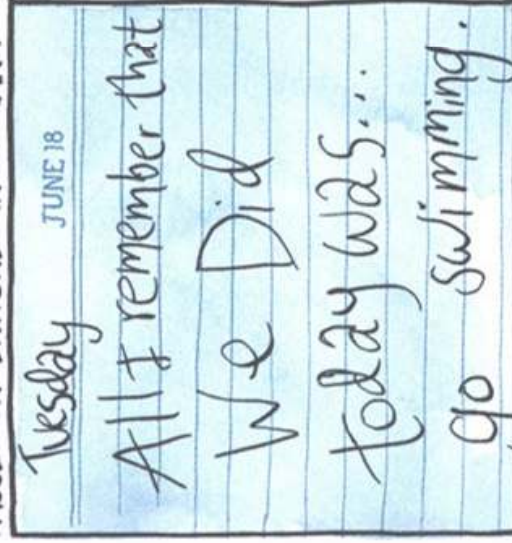 Tuesday
JUNE 18
All I remember that
We Did
today was...
go swimming.